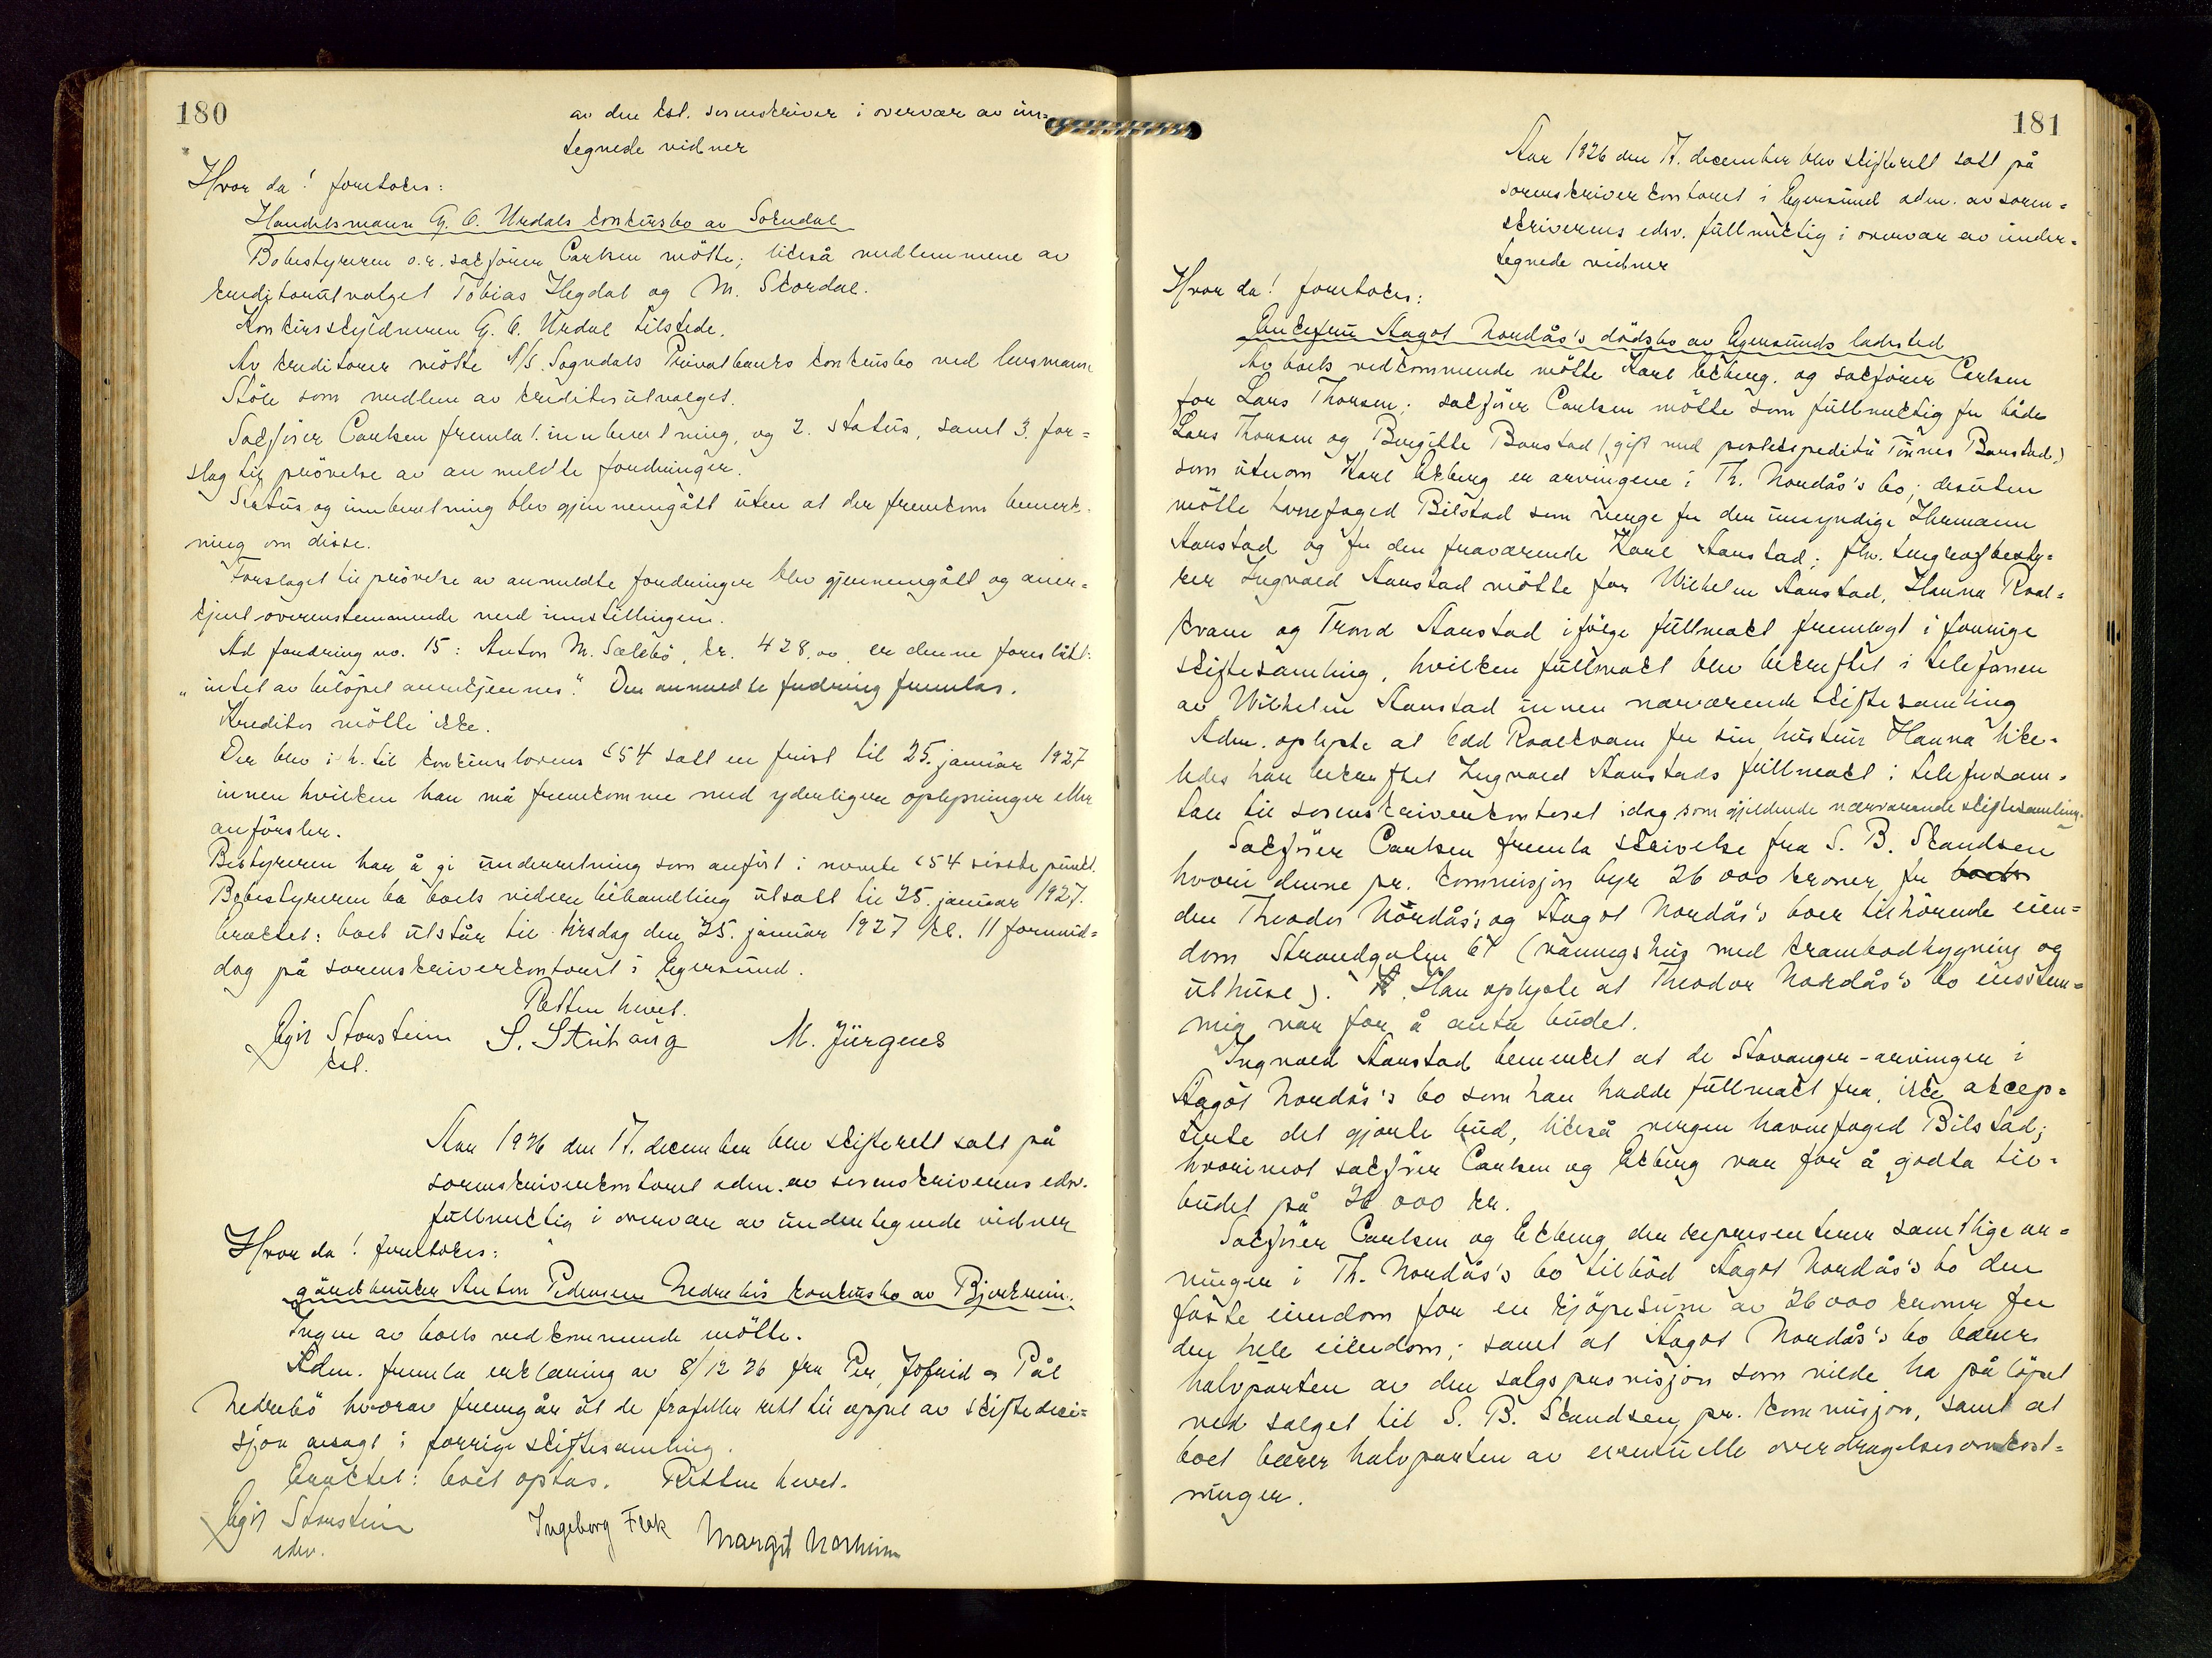 180
av den kst. sorenskriver i overvær av un-
tegnede vidner
Hvor da! foretokes:
Handelsmann G. O. Urdals konkursbo av Sokndal
Bobestyreren o.r. sakförer Carlsen mötte; likeså medlemmene av
kreditorutvalget Tobias Hegdal og M. Skordal.
Konkursskyldneren G. O. Urdal tilstede.
Av kreditorer mötte A/S. Sogndals Privatbanks konkursbo ved lensmann
Stöle som medlem av kreditorutvalget.
Sakförer Carlsen fremla 1. innberetning, og 2. status, samt 3. for=
slag til prövelse av anmeldte fordringer.
Status og innberetning blev gjennemgått uten at der fremkom bemerk-
ning om disse.
Forslaget til prövelse av anmeldte fordringer blev gjennemgått og aner=
kjent overenstemmende med innstillingen.
Ad fordring no. 15: Anton M. Sælebö, kr. 428,00, er denne foreslått:
"intet av belöpet anerkjennes". Den anmeldte fordring fremlas.
Kreditor mötte ikke.
Der blev i h. til konkurslovens § 54 satt en frist til 25. januar 1927
innen hvilken han må fremkomme med yderligere oplysninger eller
anförsler.
Bestyreren har å gi underretning som anfört i nevnte § 54 sisste punkt.
Bobestyreren ba boets videre behandling utsatt til 25. januar 1927.
besluttet: boet utstår til tirsdag den 25. januar 1927 kl. 11 formid=
dag på sorenskriverkontoret i Egersund.
Retten hevet.
Egil Storstein S. Strihaug M. Jürgens
kst.
Aar 1926 den 17. december blev skifterett satt på
sorenskriverkontoret adm. av sorenskriverens edsv.
fullmektig i overvær av undertegnede vidner
Hvor da! foretokes:
gårdbruker Anton Pedersen Nedrebös konkursbo av Bjerkreim.
Ingen av boets vedkommende mötte.
Adm. fremla erklæring av 8/12 26 fra Per, Jofrid og Pål
Nedrebö hvorav fremgår at de frafaller rett til appel av skiftedeci=
sjon avsagt i forrige skiftesamling.
besluttet: boet optas. Retten hevet.
Egil Storstein Ingeborg Flek Margit Norheim
edsv.
181
Aar 1926 den 17. december blev skifterett satt på
sorenskriverkontoret i Egersund adm. av soren=
skriverens edsv. fullmektig i overvær av under=
tegnede vidner
Hvor da! foretokes:
Enkefru Aagot Nordås's dödsbo av Egersunds ladested
Av boets vedkommende mötte Karl Ekberg, og sakförer Carlsen
for Lars Thorsen; sakförer Carlsen mötte som fullmektig for både
Lars Thorsen og Birgitte Barstad (gift med postekspeditör Tönnes Barstad)
som utenom Karl Ekberg er arvingene i Th. Nordås's bo; desuten
mötte havnefoged Bilstad som verge for den umyndige Hermann
Aarstad og for den fraværende Karl Aarstad; fhv. telegrafbesty=
rer Ingvald Aarstad mötte for Wilhelm Aarstad, Hanna Roal=
kvam og Trond Aarstad ifölge fullmakt fremlagt i forrige
skiftesamling, hvilken fullmakt blev bekreftet i telefonen
av Wilhelm Aarstad innen nærværende skiftesamling
Adm. oplyste at Edd Roalkvam for sin hustru Hanna like=
ledes har bekreftet Ingvald Aarstads fullmakt i telefonsam=
tale til sorenskriverkontoret idag som gjeldende nærværende skiftesamling.
Sakförer Carlsen fremla skrivelse fra S. B. Skandsen
hvori denne pr. kommisjon byr 26 000 kroner for boets
den Theodor Nordås's og Aagot Nordås's boer tilhörende eien=
dom Strandgaten 67 (vånngshus med krambodbygning og
uthuse). Han oplyste at Theodor Nordås's bo enstem=
mig var for å anta budet.
Ingvald Aarstad bemerket at de Stavanger-arvinger i
Aagot Nordås's bo som han hadde fullmakt fra, ikke aksep=
terte det gjorte bud, likeså vergen havnefoged Bilstad;
hvorimot sakförer Carlsen og Ekberg var for å godta til=
budet på 26 000 kr.
Sakförer Carlsen og Ekberg der representerer samtlige ar=
vinger i Th. Nordås's bo tilböd Aagot Nordås's bo den
faste eiendom for en kjöpesum av 26 000 kroner for
den hele eiendom; samt at Aagot Nordås's bo bærer
halvparten av den salgsprovisjon som vilde ha pålöpet
ved salget til S. B. Skandsen pr. kommisjon, samt at
boet bærer halvparten av eventuelle overdragelsesomkost=
ninger.